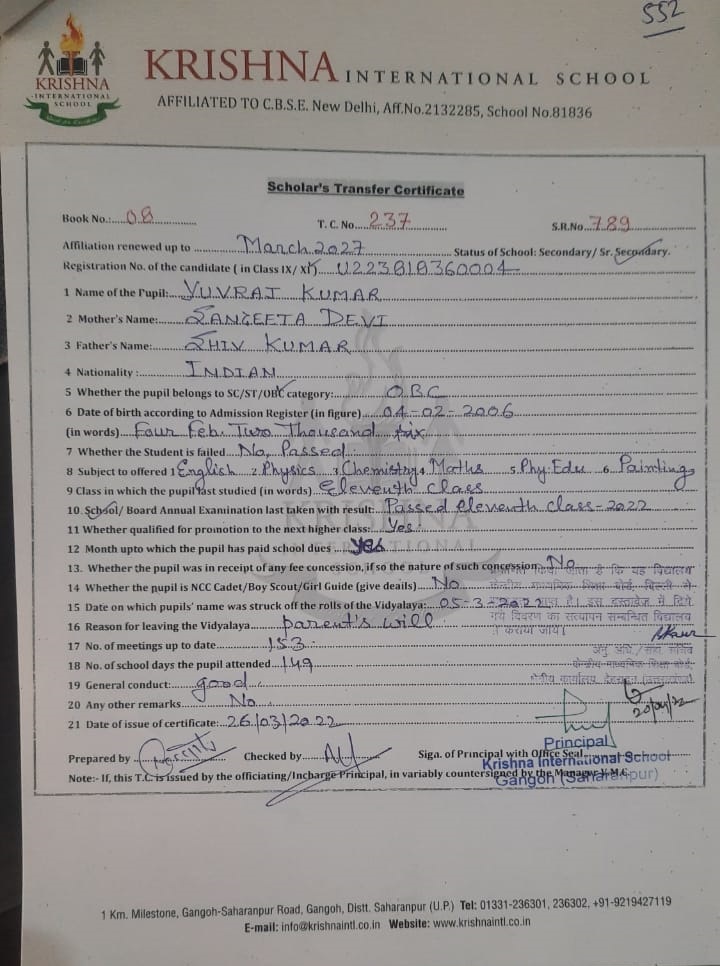 552
KRISHNA
INTERNATIONAL
SCHOOL
KRISHNA INTERNATIONAL SCHOOL
AFFILIATED TO C.B.S.E. New Delhi, Aff.No.2132285, School No.81836
Scholar's Transfer Certificate
Book No.:.....08............... T. C. No....237............... S.R.No...789
Affiliation renewed up to ............March 2027............... Status of School: Secondary/ Sr. Secondary.
Registration No. of the candidate ( in Class IX/ XI)....U223818360004
1 Name of the Pupil:...YUVRAJ KUMAR
2 Mother's Name:......SANGEETA DEVI
3 Father's Name:......SHIV KUMAR
4 Nationality :......INDIAN
5 Whether the pupil belongs to SC/ST/OBC category:......OBC
6 Date of birth according to Admission Register (in figure)...04-02-2006
(in words)....Four Feb. Two Thousand six
7 Whether the Student is failed...No, Passed.
8 Subject to offered 1 English 2 Physics 3 Chemistry 4 Maths 5 Phy. Edu 6. Painting
9 Class in which the pupil last studied (in words)...Eleventh class
10. School/ Board Annual Examination last taken with result:..Passed eleventh class-2022
11 Whether qualified for promotion to the next higher class:...Yes
12 Month upto which the pupil has paid school dues ...yes
13. Whether the pupil was in receipt of any fee concession, if so the nature of such concession:...No
14 Whether the pupil is NCC Cadet/Boy Scout/Girl Guide (give deails)...No
15 Date on which pupils' name was struck off the rolls of the Vidyalaya:...05-3-2022
16 Reason for leaving the Vidyalaya......parent's will
17 No. of meetings up to date......153
18 No. of school days the pupil attended...149
19 General conduct:....good
20 Any other remarks......No
21 Date of issue of certificate:..26/03/2022
20/04/22
Prepared by Checked by Signa. of Principal with Office Seal
Principal
Krishna International School
Gangoh (Saharanpur)
Note:- If, this T.C. is issued by the officiating/Incharge Principal, in variably countersigned by the Manager V.M.C
1 Km. Milestone, Gangoh-Saharanpur Road, Gangoh, Distt. Saharanpur (U.P.) Tel: 01331-236301, 236302, +91-9219427119
E-mail: info@krishnaintl.co.in Website: www.krishnaintl.co.in